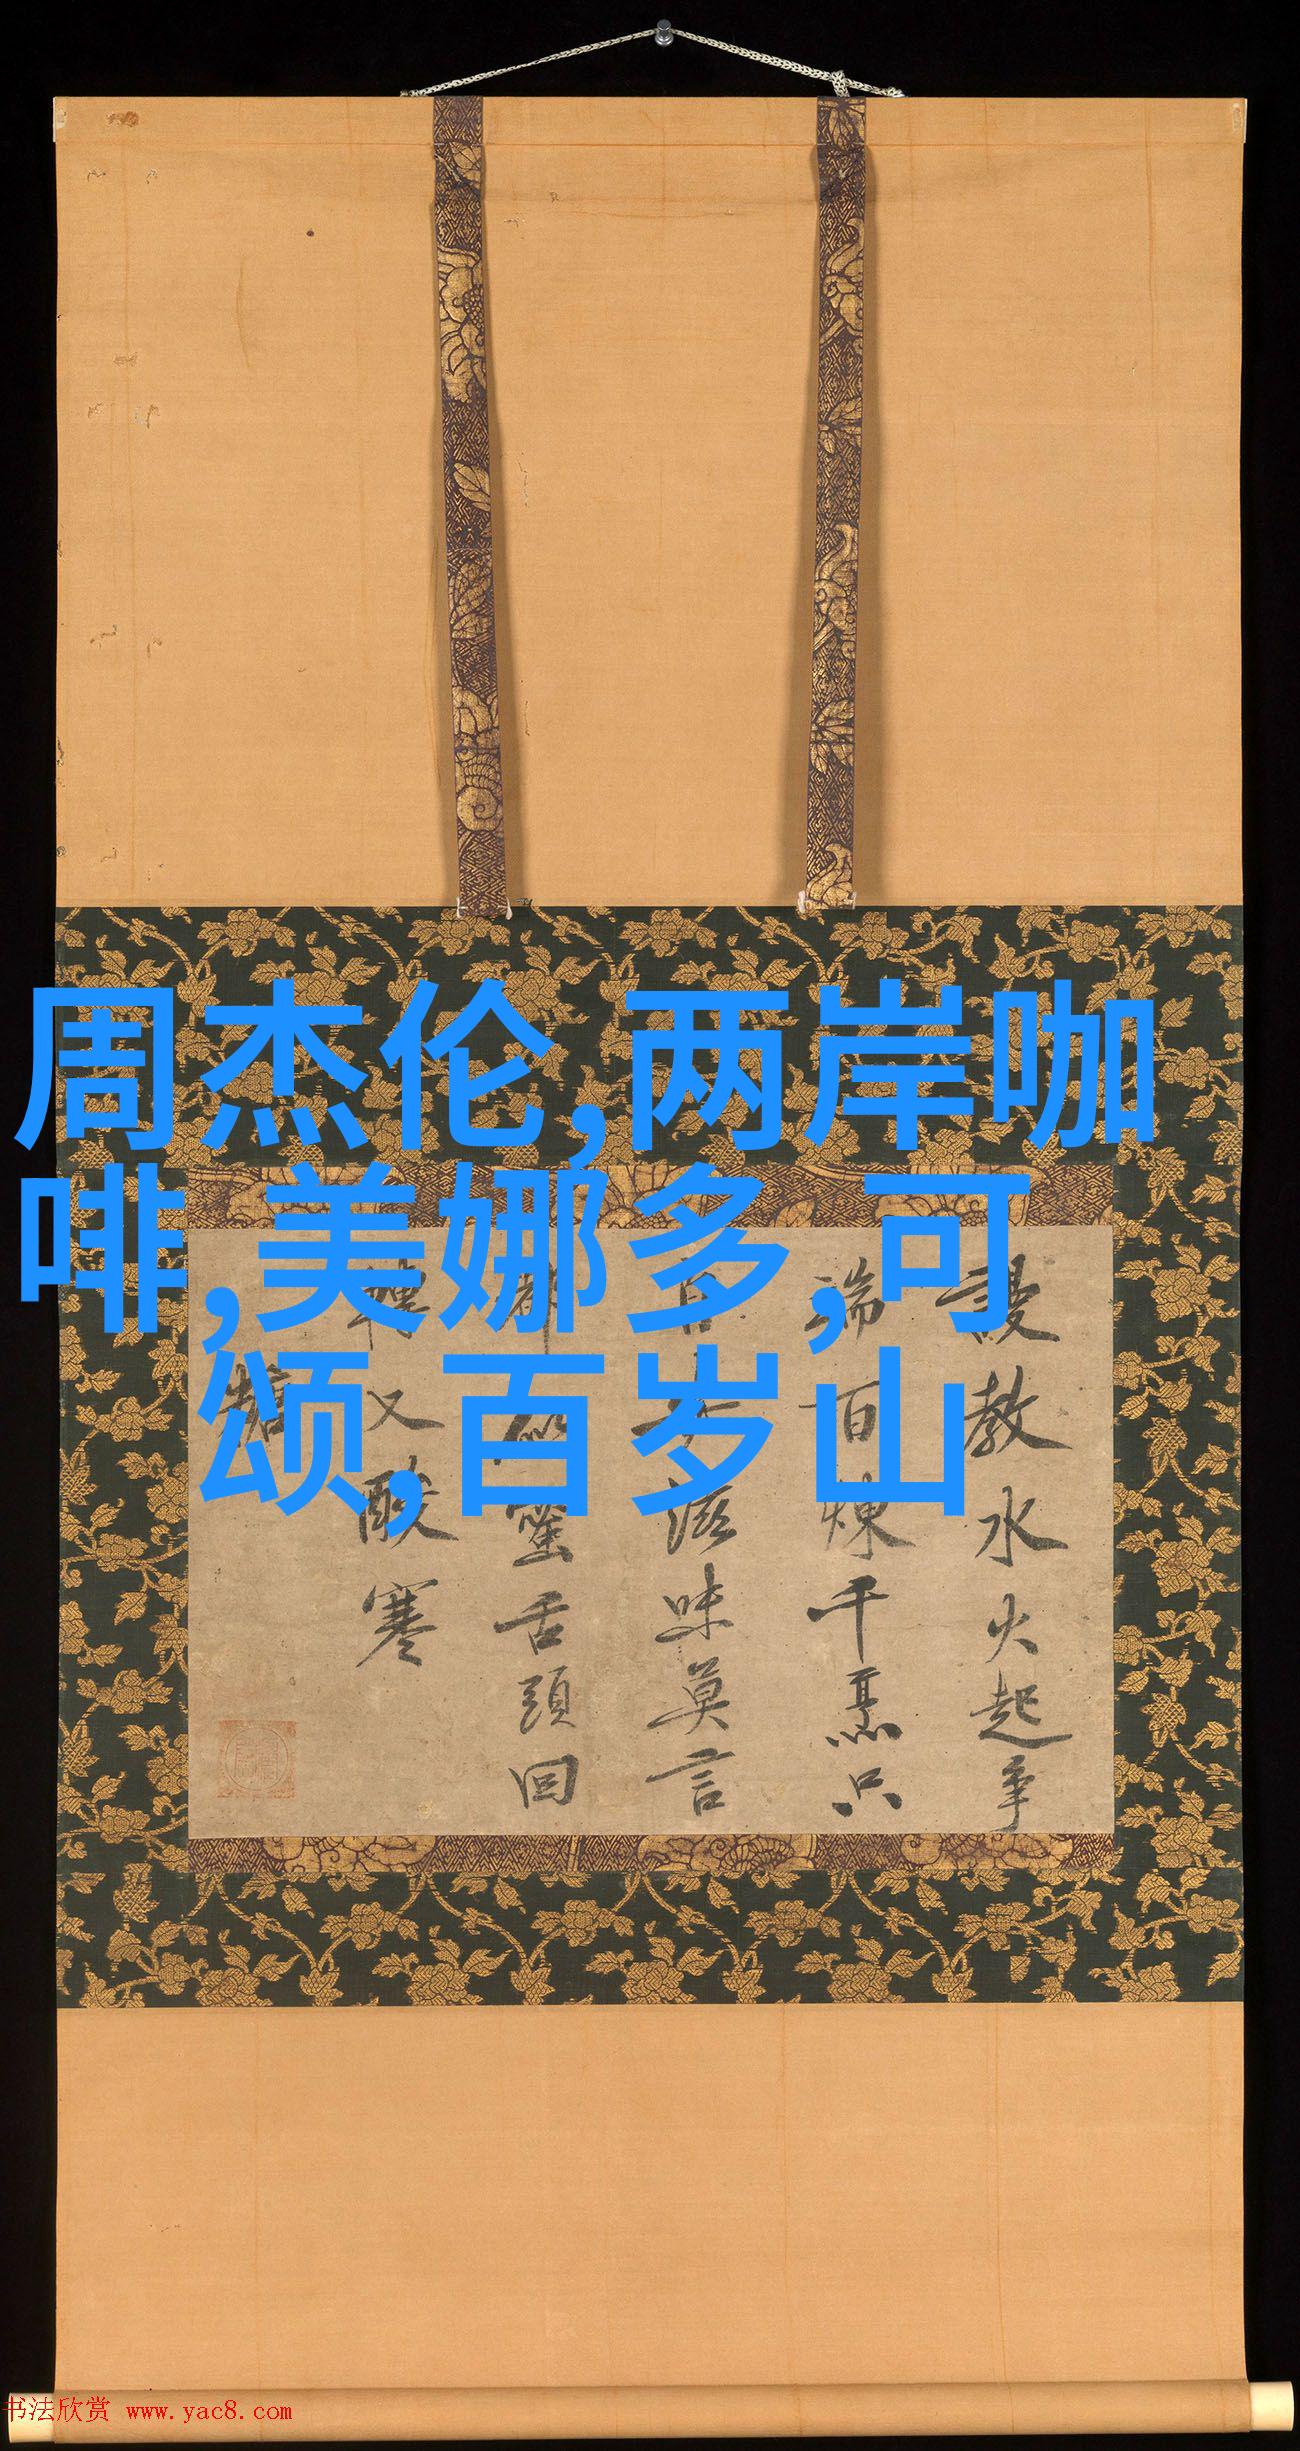 周杰伦,两岸咖
啡,美娜多,可
颂,百岁山
謾教水火起争
端百煉千烹只
滋味莫言
蜜舌頭回
轉又酸寒
糖
书法欣赏 www.yac8.com